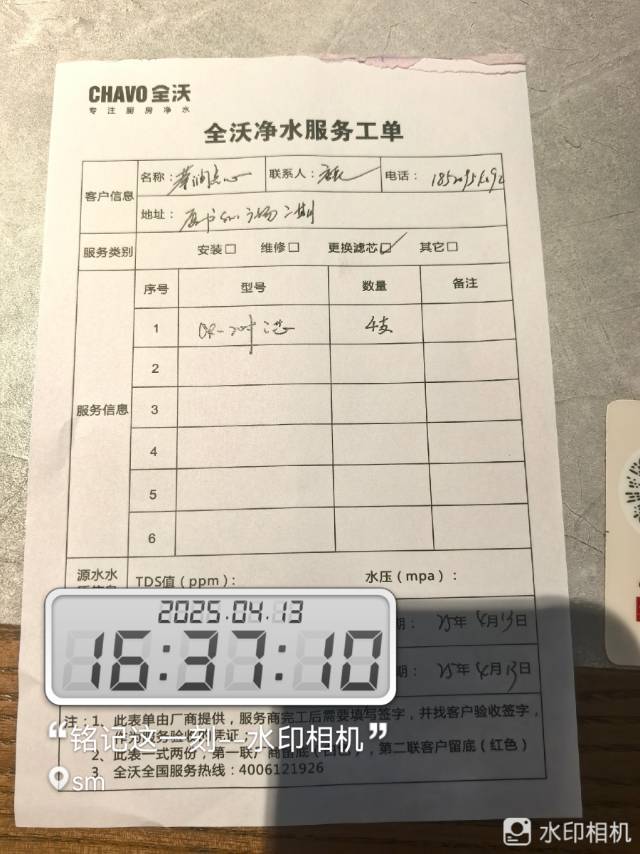 CHAVO 全沃
专注厨房净水
全沃净水服务工单
客户信息 名称： 点心 联系人： 电话：
地址： 广场二期
服务类别 安装□ 维修□ 更换滤芯☑ 其它□
服务信息
序号 型号 数量 备注
1 20寸 芯 4支
2
3
4
5
6
源水水 TDS值（ppm）： 水压（mpa）：
期： 25年4月13日
期： 25年4月13日
2025.04.13
16:37:10
注：1、此表单由厂商提供，服务商完工后需要填写签字，并找客户验收签字，
作为服务验收的凭证。
2、此表一式两份，第一联厂商留底（白色），第二联客户留底（红色）
3、全沃全国服务热线：4006121926
“铭记这一刻－水印相机”
sm
水印相机